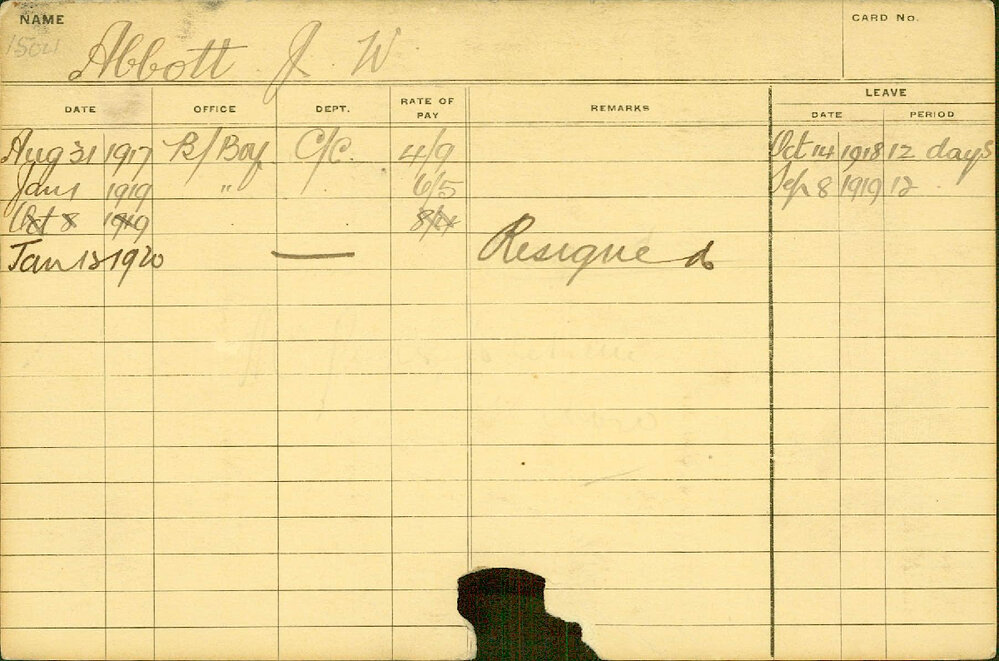 NAME
CARD No.
Abbott J. W
DATE OFFICE DEPT. RATE OF PAY REMARKS LEAVE
DATE PERIOD
Aug 31 1917 B/Boy C/C. 4/9 Oct 14 1918 12 days
Jan 1 1919 " 6/5 Sep 8 1919 12
Oct 8 1919
Jan 12 1920 — Resigned